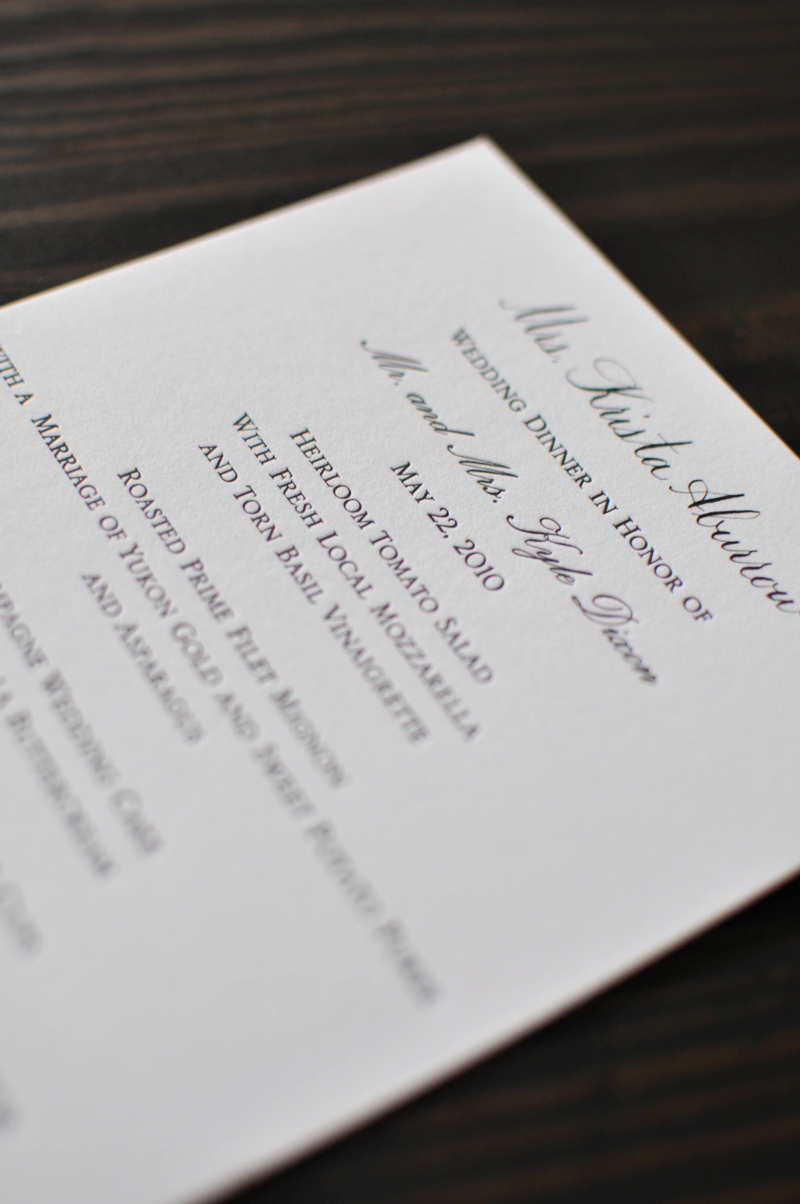 Mrs. Krista Aburrow
WEDDING DINNER IN HONOR OF
Mr. and Mrs. Kyle Dixon
MAY 22, 2010
HEIRLOOM TOMATO SALAD
WITH FRESH LOCAL MOZZARELLA
AND TORN BASIL VINAIGRETTE
ROASTED PRIME FILET MIGNON
WITH A MARRIAGE OF YUKON GOLD AND SWEET POTATO PUREE
AND ASPARAGUS
WEDDING CAKE
BUTTERCREAM